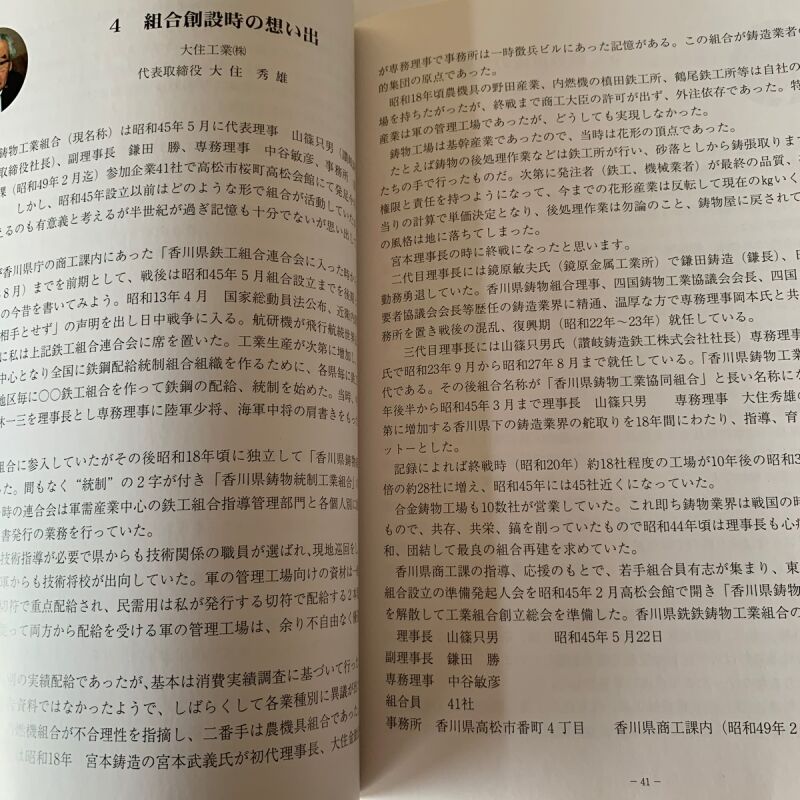 4 組合創設時の想い出
大住工業㈱
代表取締役 大住 秀雄
鋳物工業組合（現名称）は昭和45年５月に代表理事 山篠只男（讃岐
取締役社長）、副理事長 鎌田 勝、専務理事 中谷敏彦、事務所
課（昭和49年２月迄）参加企業41社で高松市桜町高松会館にて発足
しかし、昭和45年設立以前はどのような形で組合が活動していた
えるのも有意義と考えるが半世紀が過ぎ記憶も十分でないが思い出し
が香川県庁の商工課内にあった「香川県鉄工組合連合会に入った時か
年８月）までを前期として、戦後は昭和45年５月組合設立までを後
の今昔を書いてみよう。昭和13年４月 国家総動員法公布、近衛内
相手とせず」の声明を出し日中戦争に入る。航研機が飛行航続世界
に私は上記鉄工組合連合会に席を置いた。工業生産が次第に増加し
中心となり全国に鉄鋼配給統制組合組織を作るために、各県毎に
地区毎に〇〇鉄工組合を作って鉄鋼の配給、統制を始めた。当時、
林一三を理事長とし専務理事に陸軍少将、海軍中将の肩書きをもっ
組合に参入していたがその後昭和18年頃に独立して「香川県鋳物
った。間もなく“統制”の２字が付き「香川県鋳物統制工業組合」
時の連合会は軍需産業中心の鉄工組合指導管理部門と各個人別に
書発行の業務を行っていた。
技術指導が必要で県からも技術関係の職員が選ばれ、現地巡回をし
軍からも技術将校が出向していた。軍の管理工場向けの資材は一
切符で重点配給され、民需用は私が発行する切符で配給する２本
って両方から配給を受ける軍の管理工場は、余り不自由なく
別の実績配給であったが、基本は消費実績調査に基づいて行っ
資料ではなかったようで、しばらくして各業種別に異議が
燃機組合が不合理性を指摘し、二番手は農機具組合であった
は昭和18年 宮本鋳造の宮本武義氏が初代理事長、大住金
が専務理事で事務所は一時徴兵ビルにあった記憶がある。この組合が鋳造業者の
的集団の原点であった。
昭和18年頃農機具の野田産業、内燃機の槙田鉄工所、鶴尾鉄工所等は自社の
場を持ちたがったが、終戦まで商工大臣の許可が出ず、外注依存であった。特
産業は軍の管理工場であったが、どうしても実現しなかった。
鋳物工場は基幹産業であったので、当時は花形の頂点であった。
たとえば鋳物の後処理作業などは鉄工所が行い、砂落としから鋳張取りま
たちの手で行ったものだ。次第に発注者（鉄工、機械業者）が最終の品質、
権限と責任を持つようになって、今までの花形産業は反転して現在の㎏いく
当りの計算で単価決定となり、後処理作業は勿論のこと、鋳物屋に戻されて
の風格は地に落ちてしまった。
宮本理事長の時に終戦になったと思います。
二代目理事長には鏡原敏夫氏（鏡原金属工業所）で鎌田鋳造（鎌長）、日
勤務勇退していた。香川県鋳物組合理事、四国鋳物工業協議会会長、四国
要者協議会会長等歴任の鋳造業界に精通、温厚な方で専務理事岡本氏と共
務所を置き戦後の混乱、復興期（昭和22年～23年）就任している。
三代目理事長には山篠只男氏（讃岐鋳造鉄工株式会社社長）専務理事
氏で昭和23年９月から昭和27年８月まで就任している。「香川県鋳物工業
代である。その後組合名称が「香川県鋳物工業協同組合」と長い名称にな
年後半から昭和45年３月まで理事長 山篠只男 専務理事 大住秀雄の
第に増加する香川県下の鋳造業界の舵取りを18年間にわたり、指導、育
ットーとした。
記録によれば終戦時（昭和20年）約18社程度の工場が10年後の昭和3
倍の約28社に増え、昭和45年には45社近くになっていた。
合金鋳物工場も10数社が営業していた。これ即ち鋳物業界は戦国の時
もので、共存、共栄、鎬を削っていたもので昭和44年頃は理事長も心
和、団結して最良の組合再建を求めていた。
香川県商工課の指導、応援のもとで、若手組合員有志が集まり、東
組合設立の準備発起人会を昭和45年２月高松会館で開き「香川県鋳物
を解散して工業組合創立総会を準備した。香川県銑鉄鋳物工業組合の
理事長 山篠只男 昭和45年５月22日
副理事長 鎌田 勝
専務理事 中谷敏彦
組合員 41社
事務所 香川県高松市番町４丁目 香川県商工課内（昭和49年２
－41－